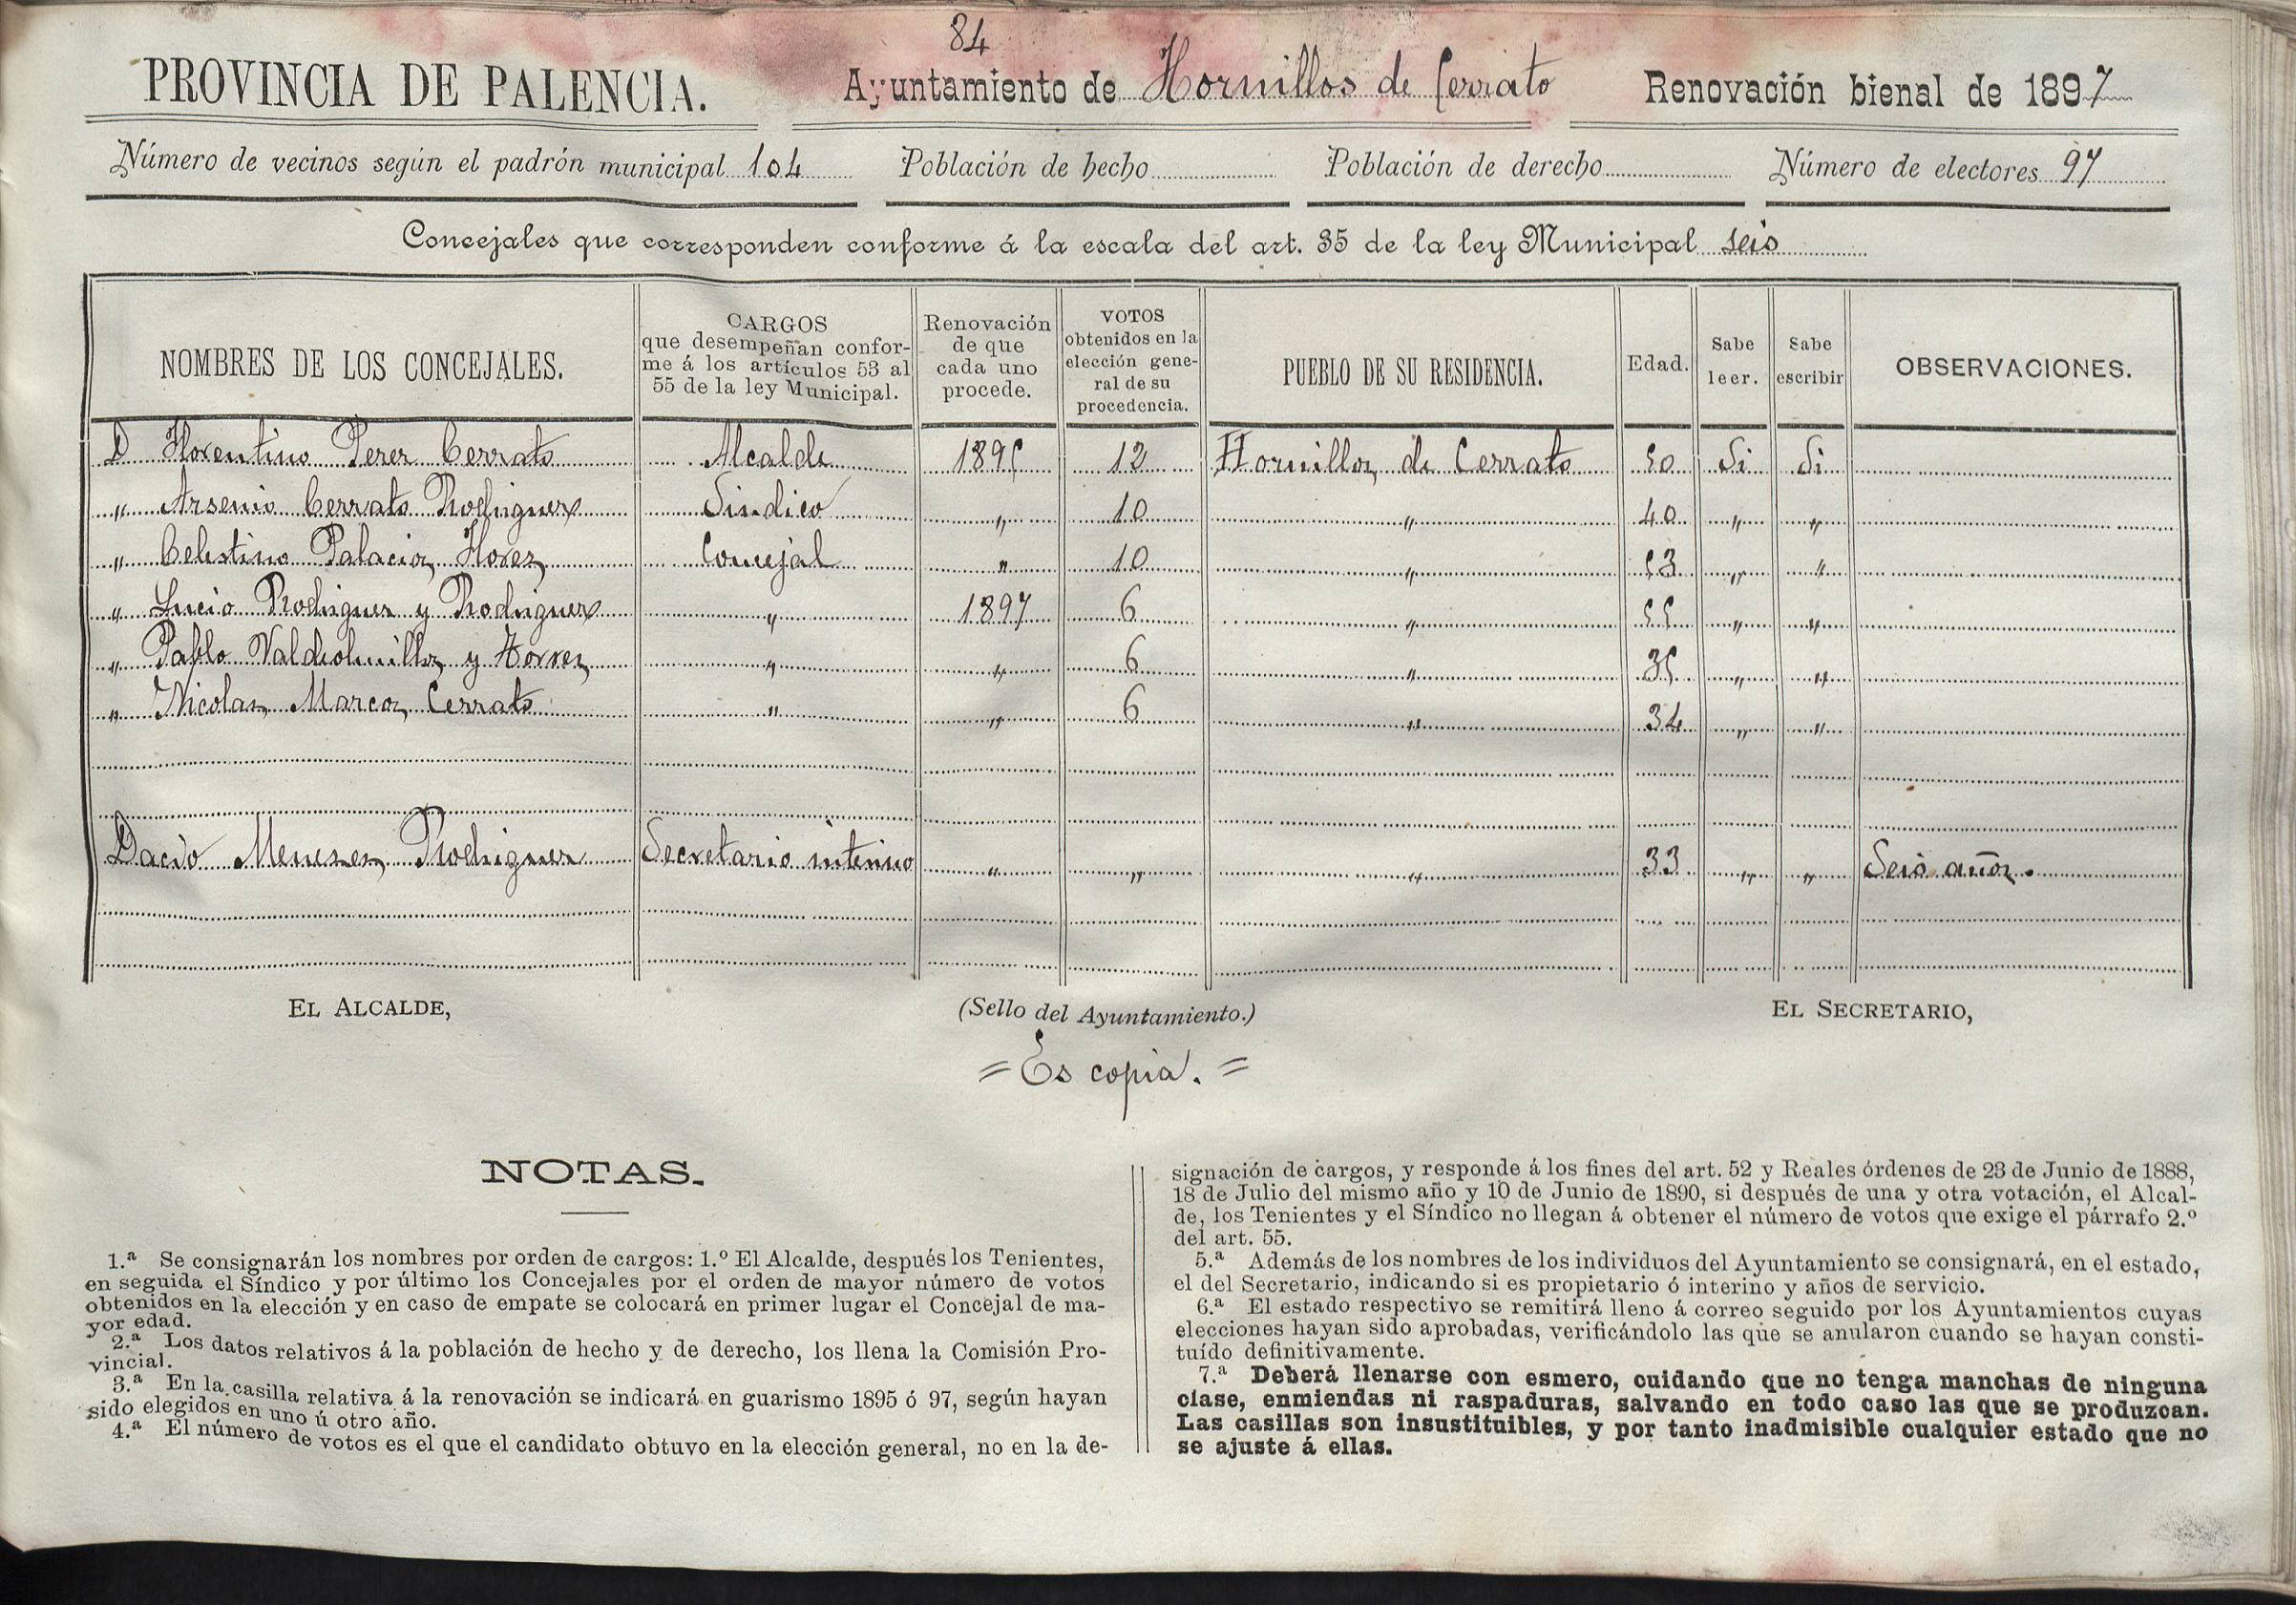 84
PROVINCIA DE PALENCIA. Ayuntamiento de Hornillos de Cerrato Renovación bienal de 1897
Número de vecinos según el padrón municipal 104 Población de hecho Población de derecho Número de electores 97
Concejales que corresponden conforme á la escala del art. 35 de la ley Municipal seis
NOMBRES DE LOS CONCEJALES. CARGOS que desempeñan conforme á los artículos 53 al 55 de la ley Municipal. Renovación de que cada uno procede. VOTOS obtenidos en la elección general de su procedencia. PUEBLO DE SU RESIDENCIA. Edad. Sabe leer. Sabe escribir OBSERVACIONES.
D Florentino Perez Cerrato Alcalde 1895 12 Hornillos de Cerrato 50 Si Si
" Arsenio Cerrato Rodriguez Sindico " 10 " 40 " "
" Celestino Palacios Florez Concejal " 10 " 53 " "
" Lucio Rodriguez y Rodriguez " 1897 6 " 55 " "
" Pablo Valdeolmillos y Torres " " 6 " 35 " "
" Nicolas Marcos Cerrato " " 6 " 34 " "
Meneses Rodriguez Secretario interino " " " 33 " " Seis años.
EL ALCALDE, (Sello del Ayuntamiento.) EL SECRETARIO,
= Es copia. =
NOTAS.
1.ª Se consignarán los nombres por orden de cargos: 1.º El Alcalde, después los Tenientes,
en seguida el Síndico y por último los Concejales por el orden de mayor número de votos
obtenidos en la elección y en caso de empate se colocará en primer lugar el Concejal de ma-
yor edad.
2.ª Los datos relativos á la población de hecho y de derecho, los llena la Comisión Pro-
vincial.
3.ª En la casilla relativa á la renovación se indicará en guarismo 1895 ó 97, según hayan
sido elegidos en uno ú otro año.
4.ª El número de votos es el que el candidato obtuvo en la elección general, no en la de-
signación de cargos, y responde á los fines del art. 52 y Reales órdenes de 23 de Junio de 1888,
18 de Julio del mismo año y 10 de Junio de 1890, si después de una y otra votación, el Alcal-
de, los Tenientes y el Síndico no llegan á obtener el número de votos que exige el párrafo 2.º
del art. 55.
5.ª Además de los nombres de los individuos del Ayuntamiento se consignará, en el estado,
el del Secretario, indicando si es propietario ó interino y años de servicio.
6.ª El estado respectivo se remitirá lleno á correo seguido por los Ayuntamientos cuyas
elecciones hayan sido aprobadas, verificándolo las que se anularon cuando se hayan consti-
tuído definitivamente.
7.ª Deberá llenarse con esmero, cuidando que no tenga manchas de ninguna
clase, enmiendas ni raspaduras, salvando en todo caso las que se produzcan.
Las casillas son insustituibles, y por tanto inadmisible cualquier estado que no
se ajuste á ellas.